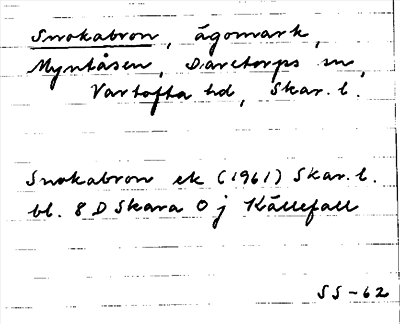 Snokabron, ägomark,
Myntåsen, Daretorps sn,
Vartofta hd, Skar. l.
Snokabron ek (1961) Skar. l.
bl. 8 D Skara 0 j Källefall
SS-62